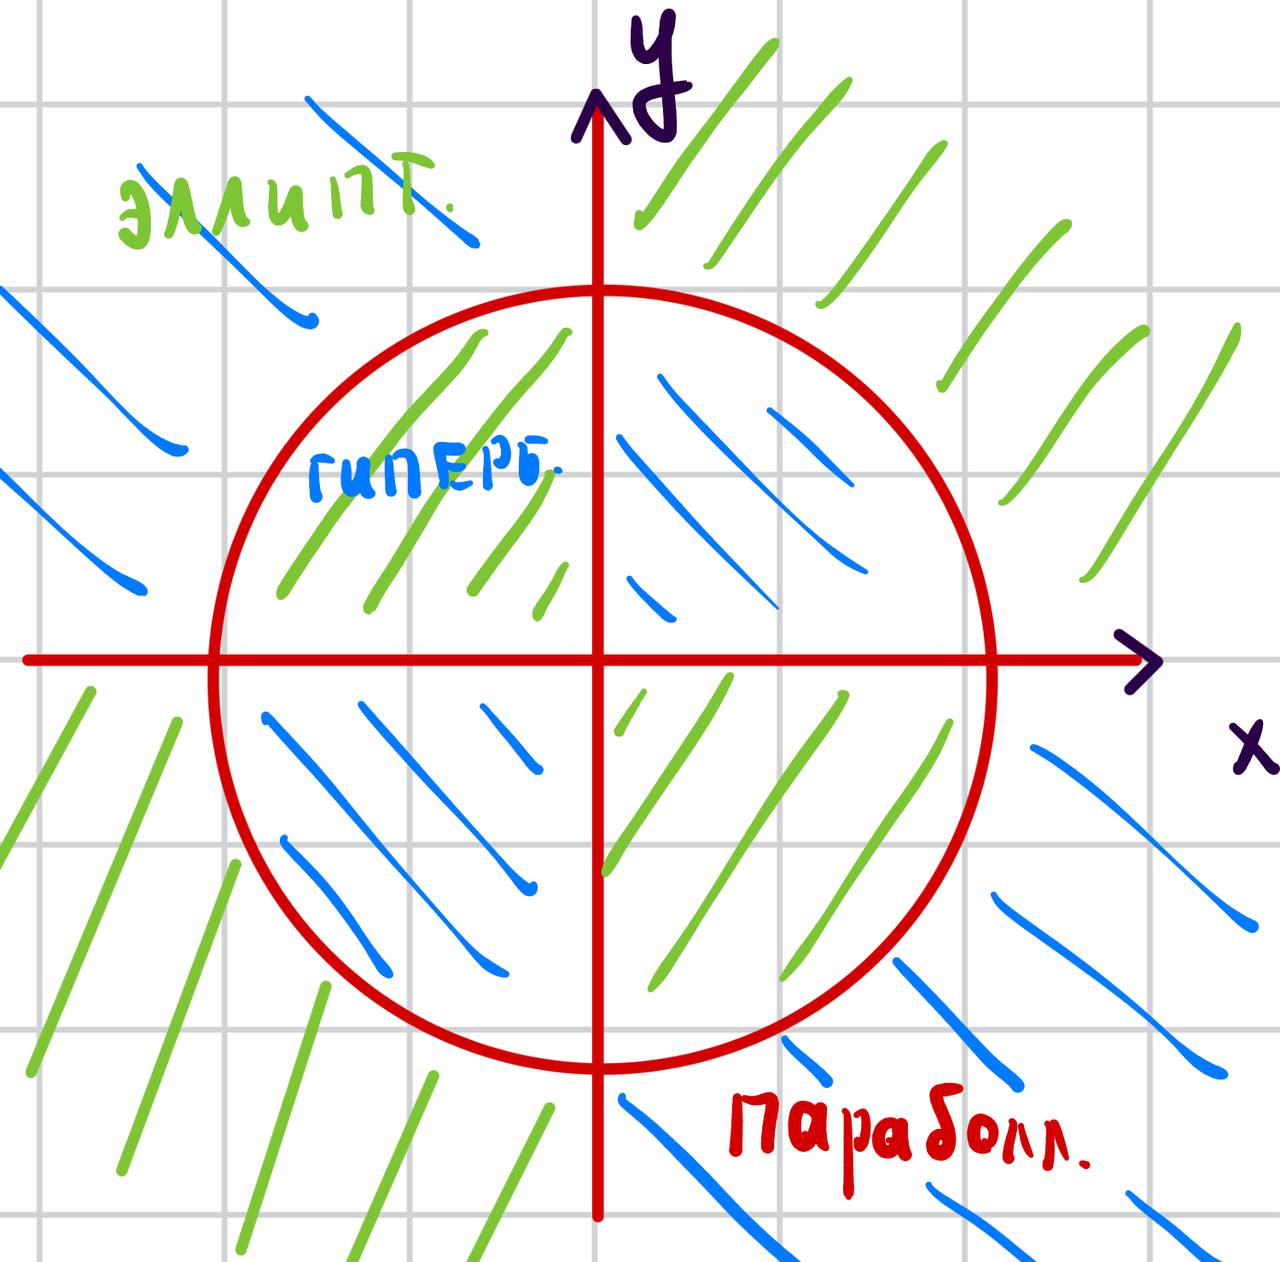 y
эллипт.
гиперб.
x
параболл.